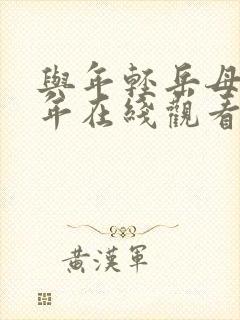 與年輕岳母
年在綫觀看
黃漢軍